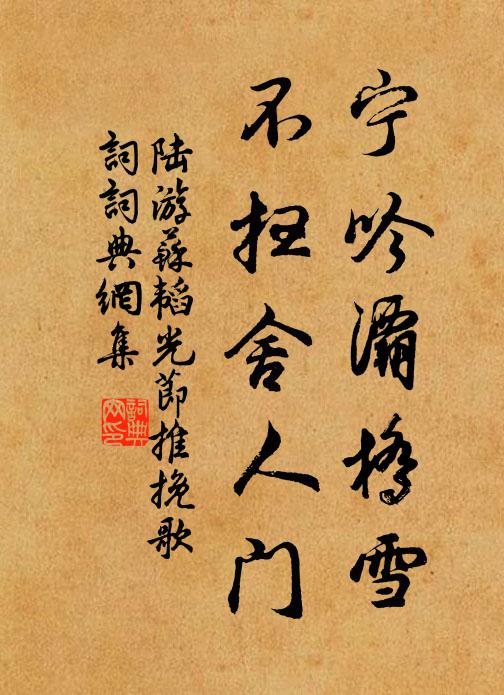 宁吟灞桥雪
不扫舍人门
陆游苏韬光节推挽歌
詞詞典網集
詞典网印